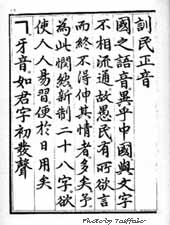 訓民正音
國之語音異乎中國與文字
不相流通故愚民有所欲言
而終不得伸其情者多矣予
為此憫然新制二十八字欲
使人人易習便於日用矣
ㄱ牙音如君字初發聲
Photo by